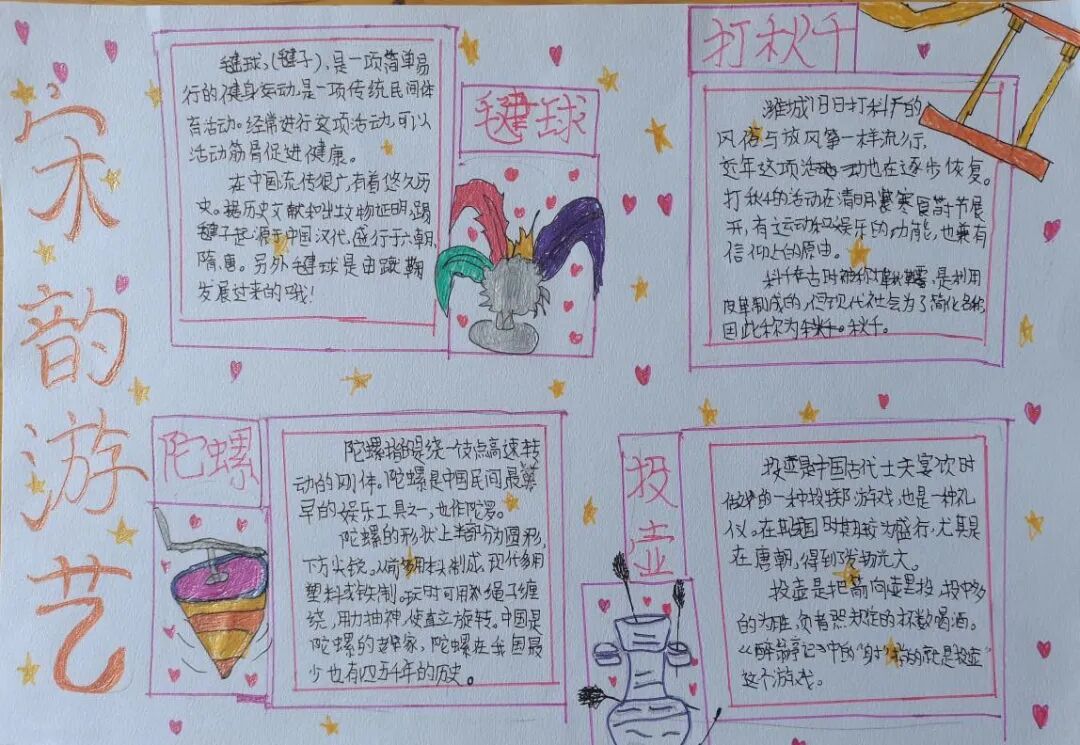 宋韵游艺
毽球
毽球,(毽子),是一项简单易
行的健身运动,是一项传统民间体
育活动。经常进行这项活动,可以
活动筋骨促进健康。
在中国流传很广,有着悠久历
史。据历史文献和出土文物证明,踢
毽子起源于中国汉代,盛行于六朝、
隋、唐。另外毽球是由蹴鞠
发展过来的哦!
打秋千
潍城旧日打秋千的
风俗与放风筝一样流行,
近年这项活动也在逐步恢复。
打秋千的活动在清明、寒食等节展
开,有运动和娱乐的功能,也兼有
信仰上的原由。
秋千在古时被称,是利用
皮革制成的,但现代社会为了简化名称
因此称为秋千。
陀螺
陀螺指的是绕一支点高速转
动的刚体。陀螺是中国民间最
早的娱乐工具之一,也作陀罗。
陀螺的形状上半部分为圆形,
下方尖锐。从前多用木头制成,现代多用
塑料或铁制。玩时可用绳子缠
绕,用力抽神,使直立旋转。中国是
陀螺的老家,陀螺在我国最
少也有四五千年的历史。
投壶
投壶是中国古代士大夫宴饮时
做的一种投掷游戏,也是一种礼
仪。在战国时期较为盛行,尤其是
在唐朝,得到了发扬光大。
投壶是把箭向壶里投,投中多
的为胜,负者照规定的杯数喝酒。
《醉翁亭记》中的“射”指的就是投壶
这个游戏。